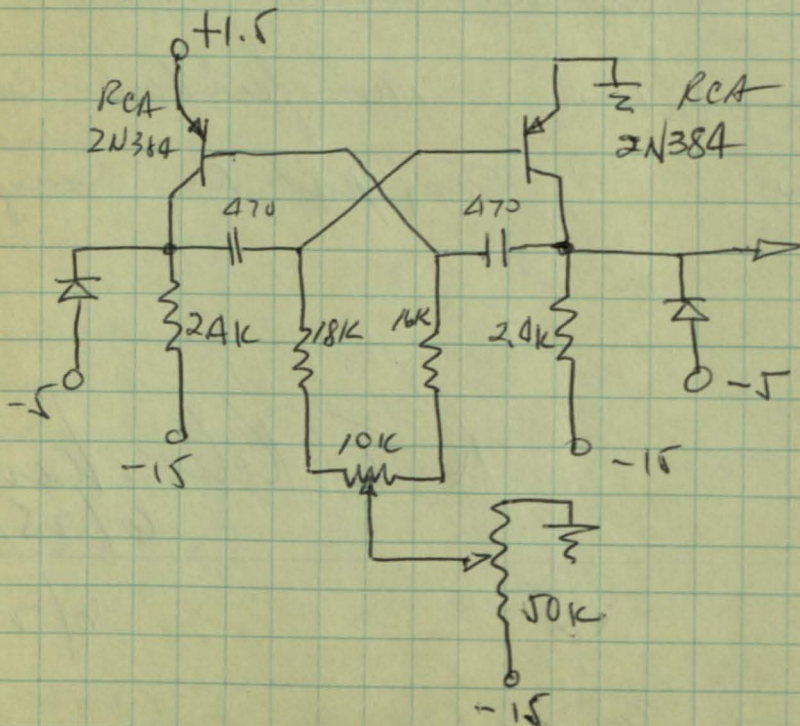 +1.5
RCA
2N384
RCA
2N384
470
470
2.4K
18K
16K
2.4K
-5
-5
10K
-15
-15
50K
-15